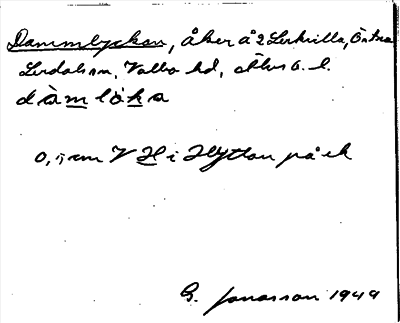 Dammlyckan, åker å 2 Lerkvilla, Östra
Lerdalsn, Valbo hd, Älvs b. l.
dàmløka
0,5 cm V H i Hyttan på ek
G. Jonasson 1949